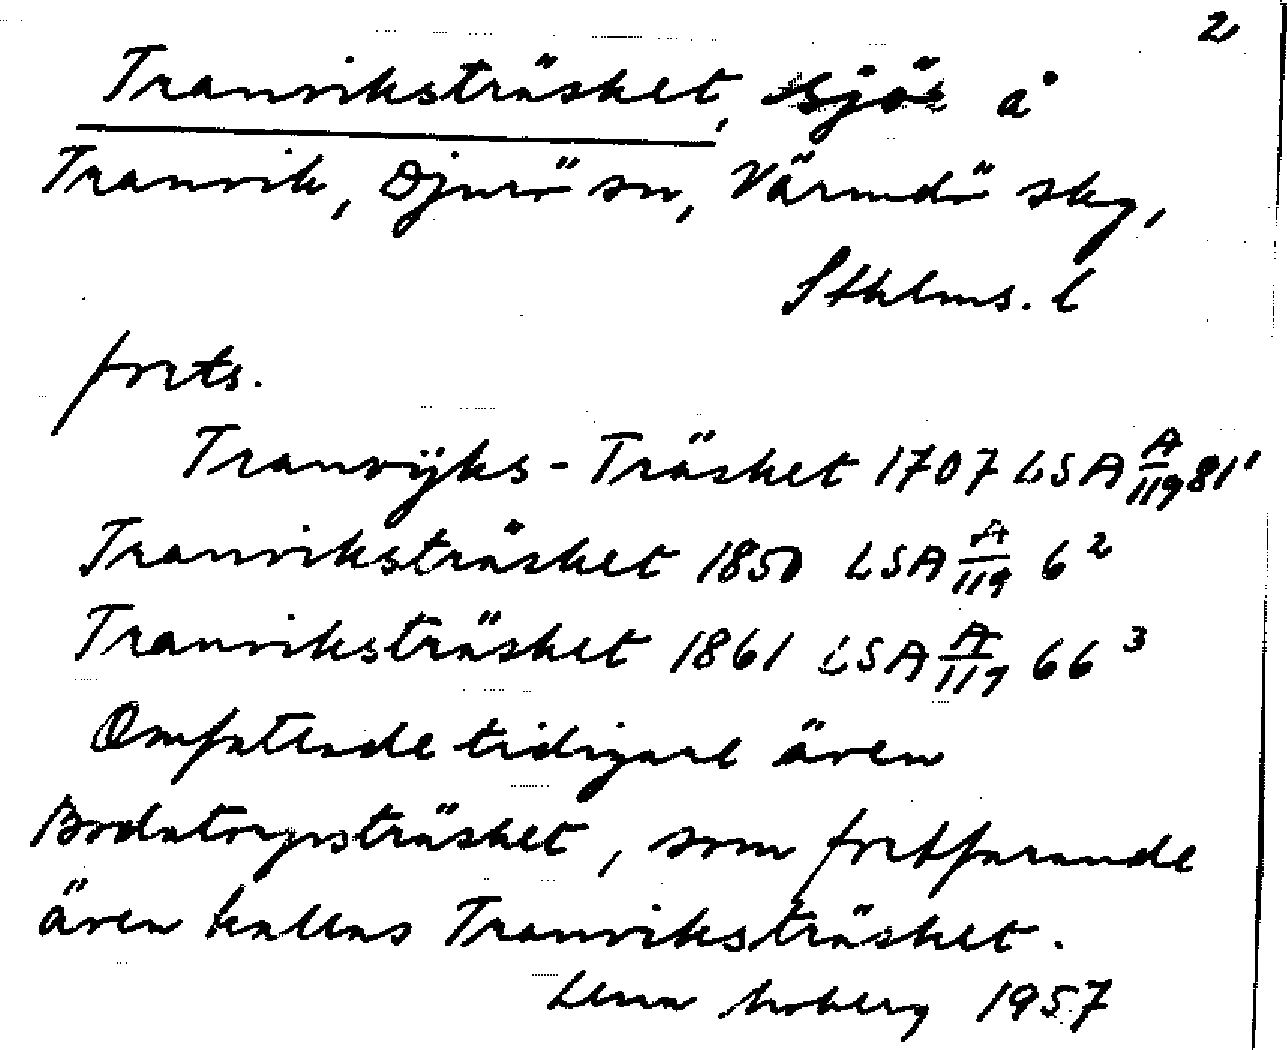 2
Tranviksträsket, sjö å
Tranvik, Djurö sn, Värmdö skg,
Sthlms. l
forts.
Tranvijks-Träsket 1707 LSA A/119 81¹
Tranviksträsket 1850 LSA A/119 6²
Tranviksträsket 1861 LSA A/119 66³
Omfattade tidigare även
Bodatorpsträsket, som fortfarande
även kallas Tranviksträsket.
Lena Moberg 1957